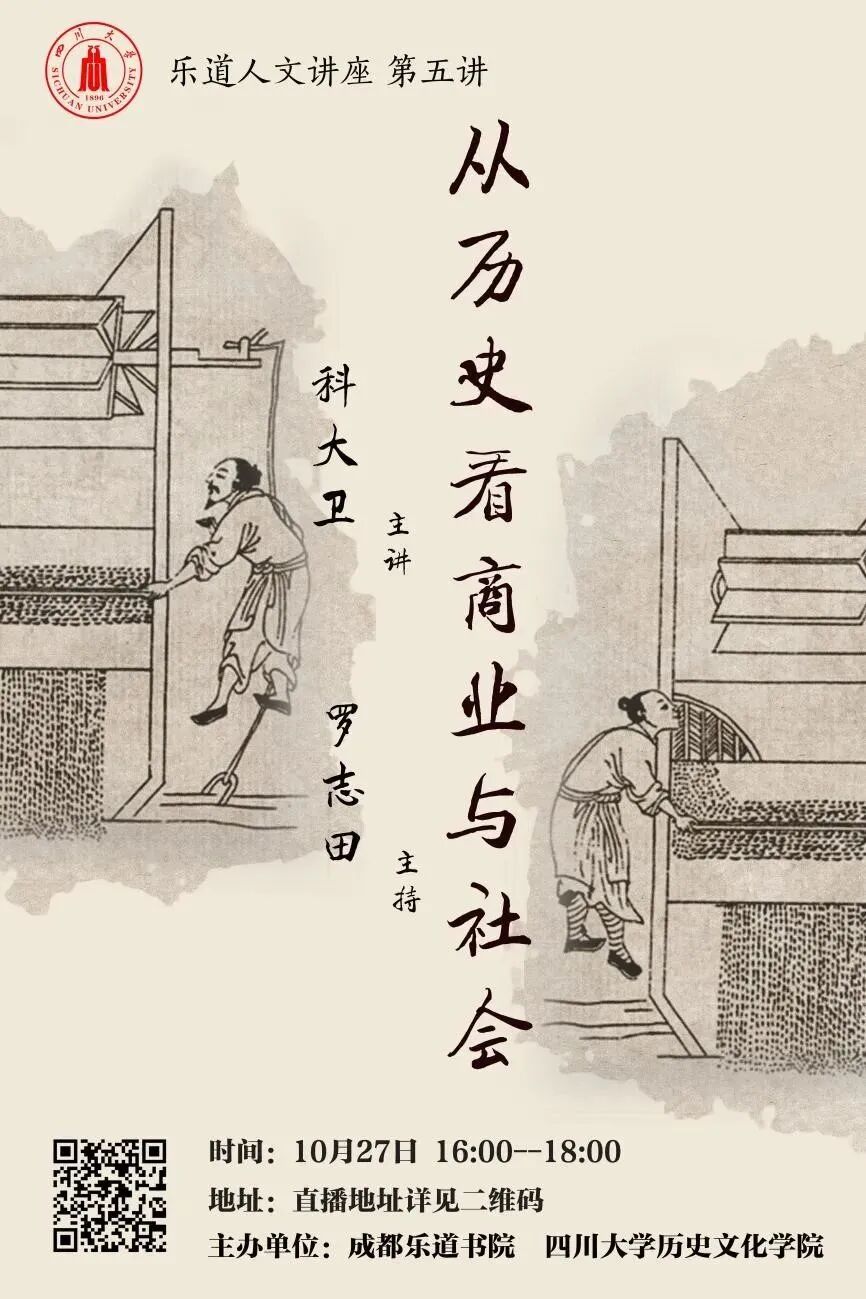 四川大学
SICHUAN UNIVERSITY
1896
乐道人文讲座 第五讲
从历史看商业与社会
科大卫
主讲
罗志田
主持
时间：10月27日 16:00--18:00
地址：直播地址详见二维码
主办单位：成都乐道书院 四川大学历史文化学院